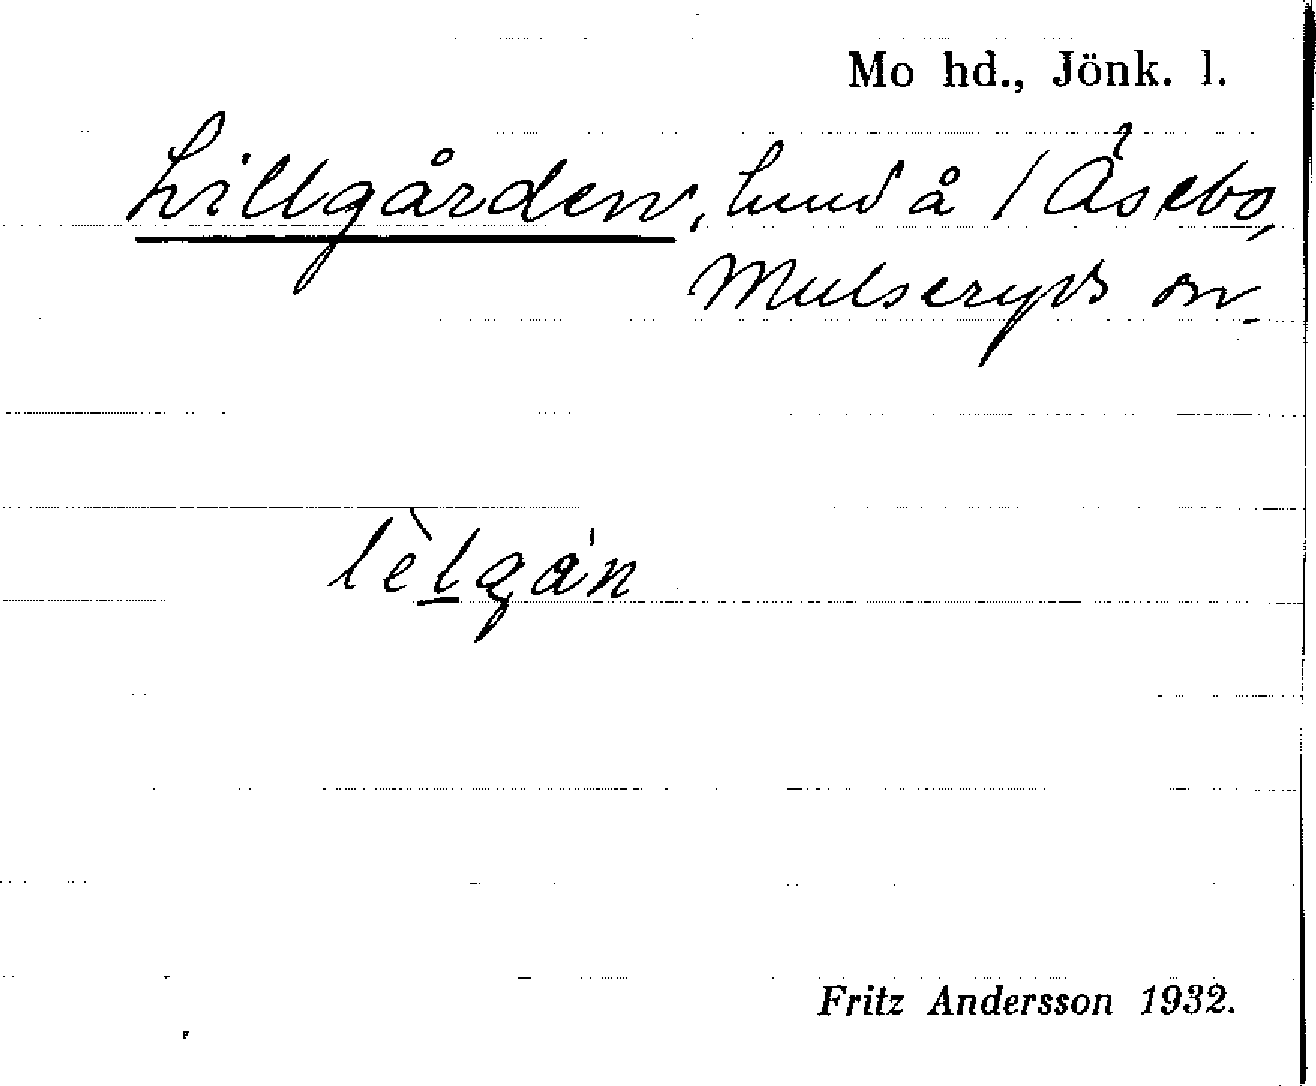 Mo hd., Jönk. l.
Lillgården, hmd å / Åsebo,
Mulseryds sn.
lèlgán
Fritz Andersson 1932.